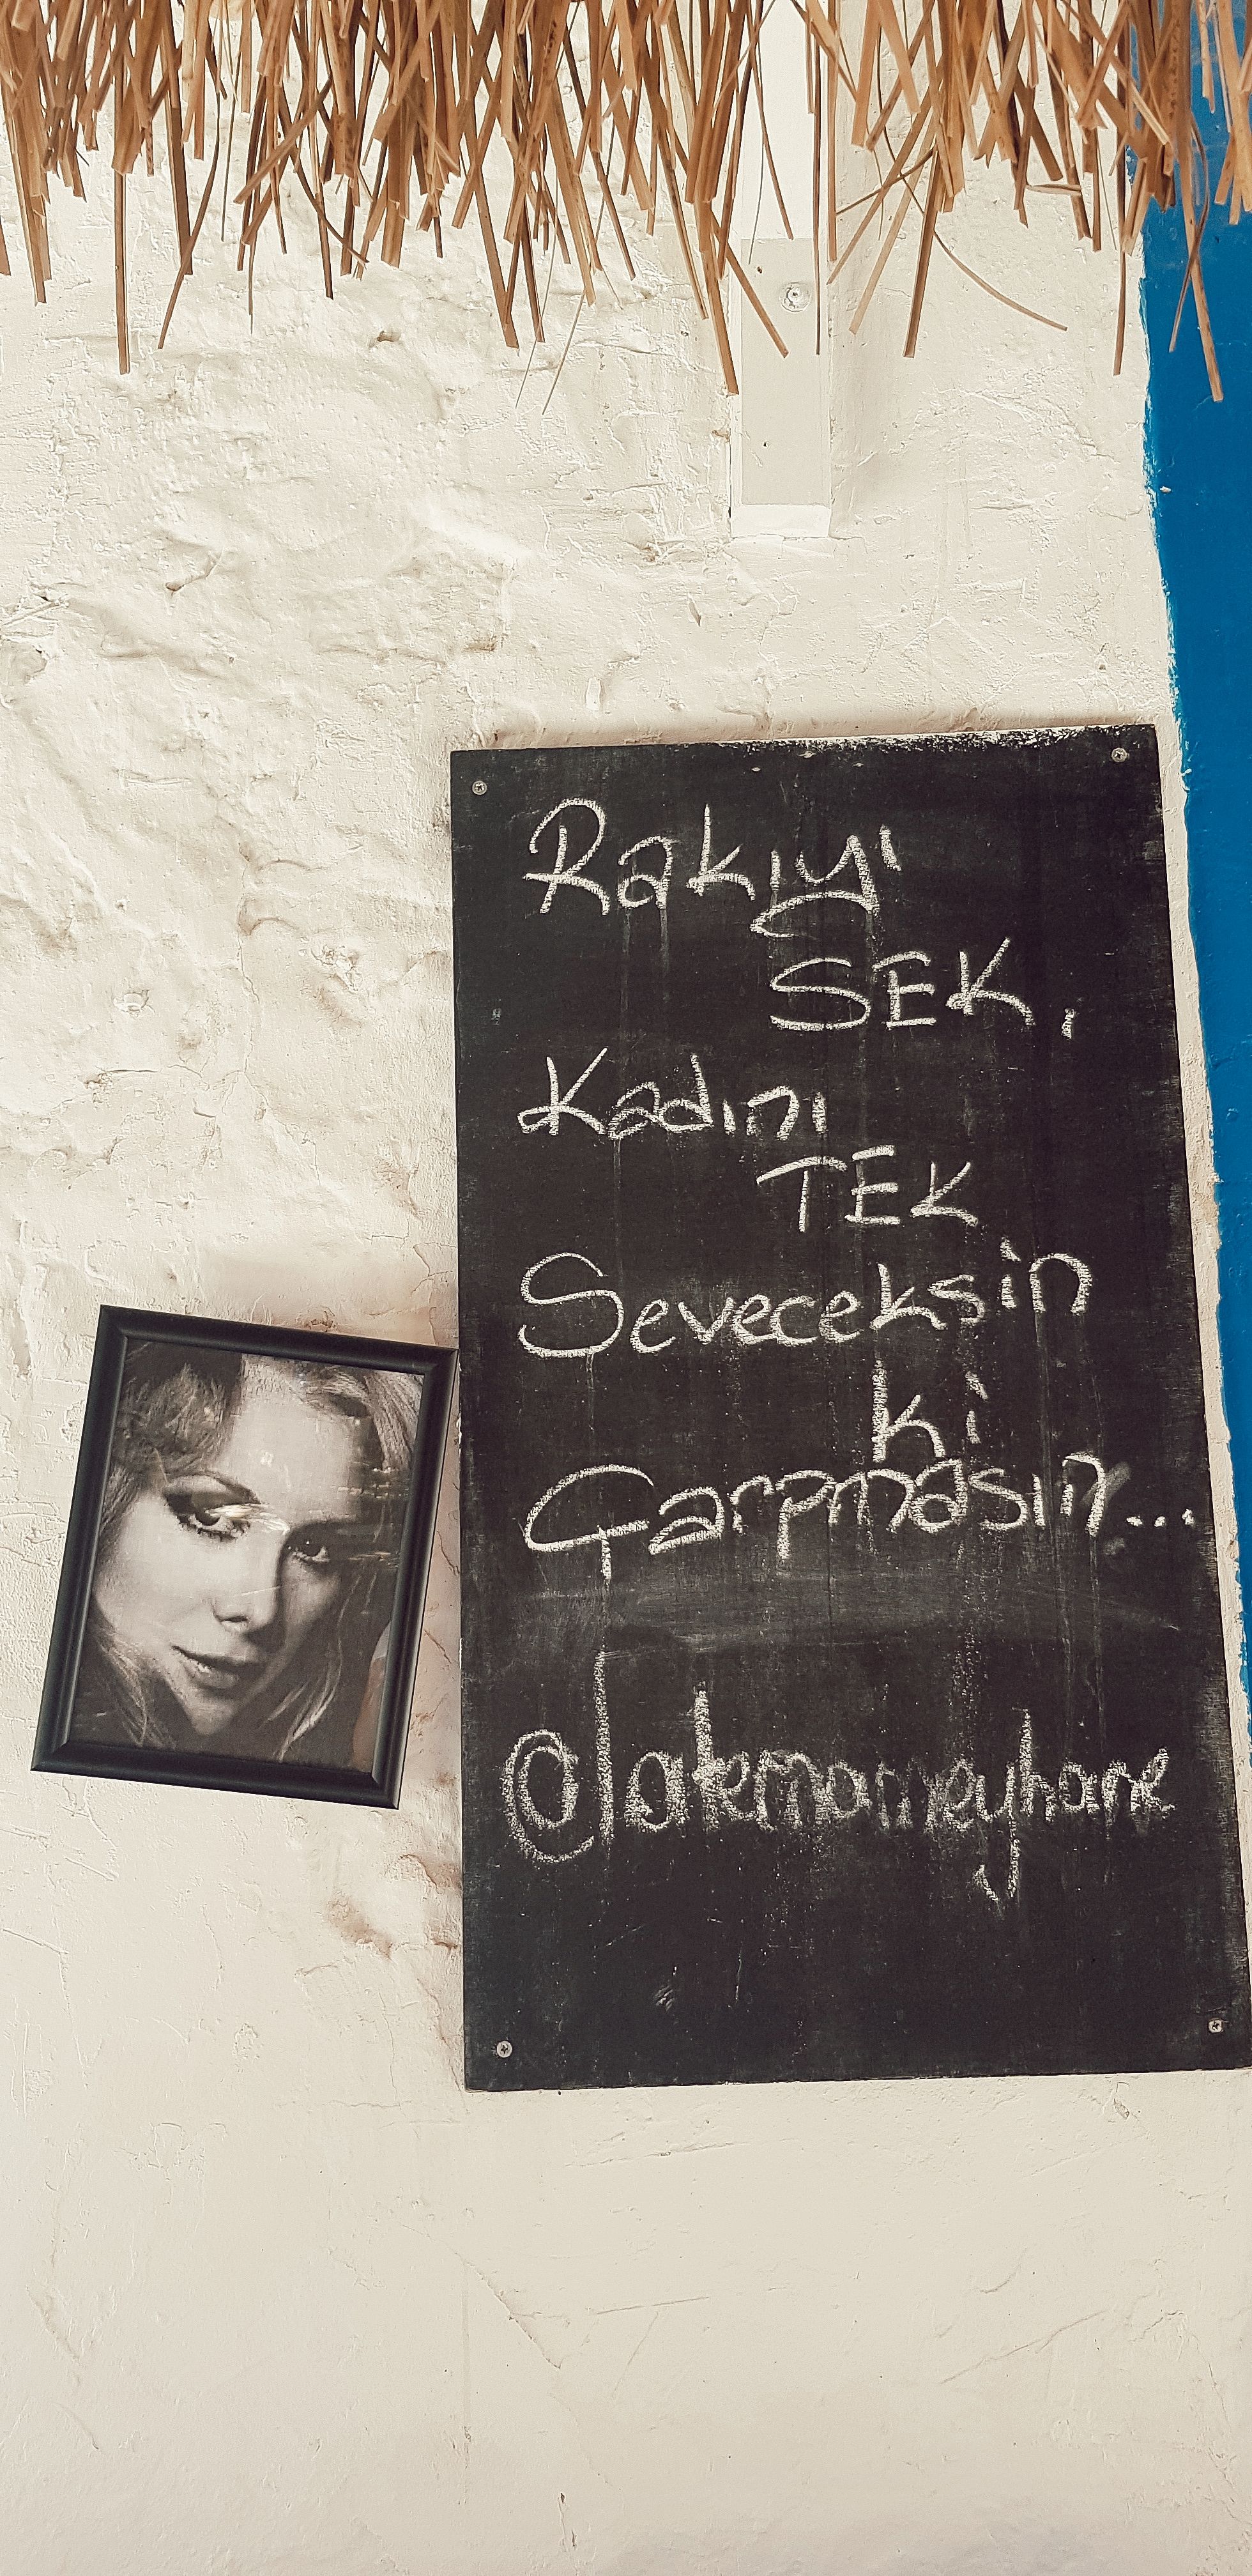 Rakıyı
SEK,
Kadını
TEK
Seveceksin
ki
Çarpmasın...
@lakernameyhane